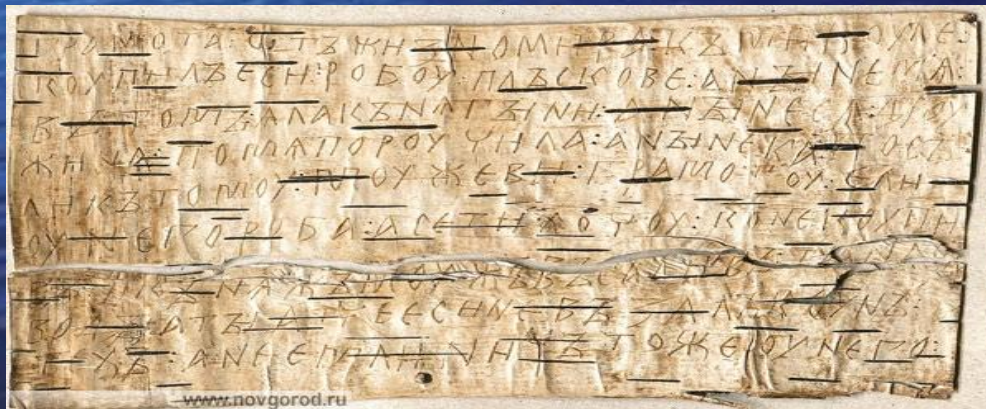 ГРАМОТА : ѠТЪ ЖИЗНОМИРА : КЪ МИКОУЛЕ :
КОУПИЛЪ ЕСИ : РОБОУ : ПЛЪСКОВЕ : А НЪІНЕ МѦ :
ВЪ ТОМЪ : ѦЛА КЪНѦГЪІНИ : А НЪІНЕ СѦ ДРОУ
ЖИНА : ПО МѦ ПОРОУЧИЛА : А НЪІНЕ КА : ПОСЪ
ЛИ КЪ ТОМОУ : МОУЖЕВИ : ГРАМОТОУ : ЕЛИ
ОУ НЕГО РОБА : А СЕ ТИ ХОЧОУ : КОНЕ КОУПИ
КЪНѦЖЪ МОУЖЪ ВЪСА
ВОДЪІ : А ТЪІ АТЧЕ ЕСИ НЕ ВЪЗАЛЪ КОУНЪ :
ТЕХЪ : А НЕ ЕМЛИ : НИЧЪТО ЖЕ ОУ НЕГО :
www.novgorod.ru